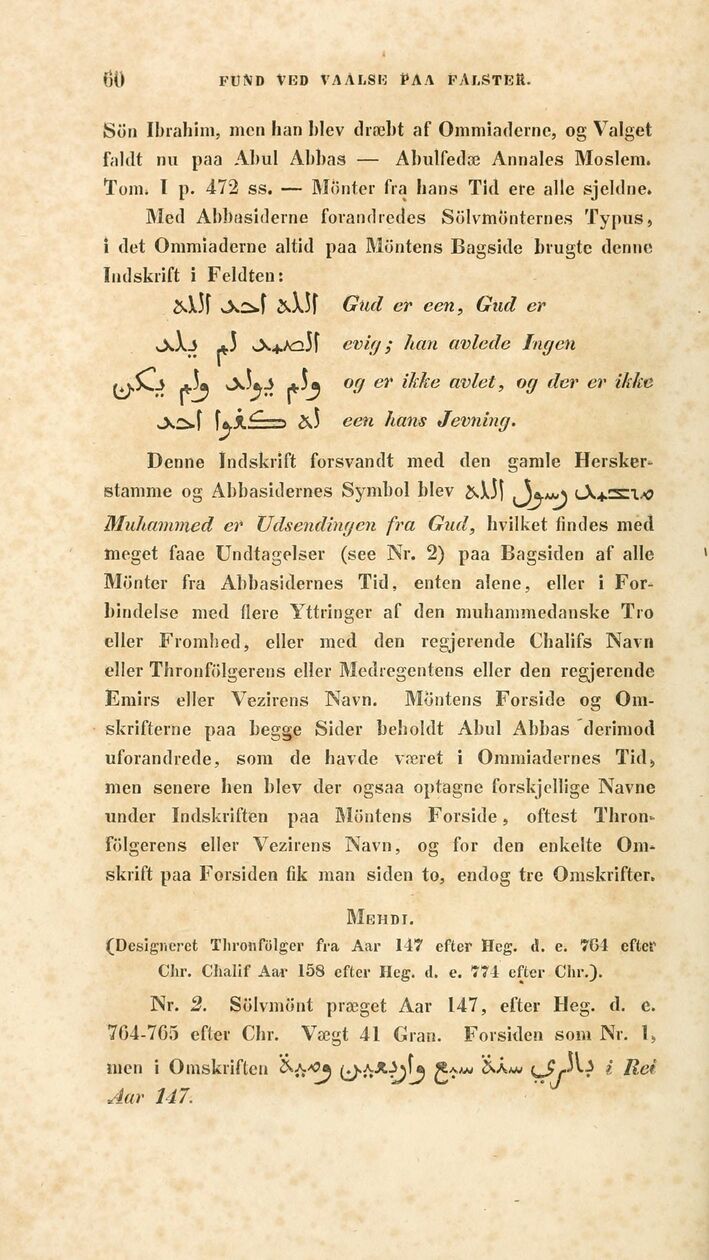 60 FUND VED VAALSE PAA FALSTER.
Sön Ibrahim, men han blev dræbt af Ommiaderne, og Valget
faldt nu paa Abul Abbas — Abulfedæ Annales Moslem.
Tom. I p. 472 ss. — Mönter fra hans Tid ere alle sjeldne.
Med Abbasiderne forandredes Sölvmönternes Typus,
i det Ommiaderne altid paa Möntens Bagside brugte denne
Indskrift i Feldten:
الله احد الله Gud er een, Gud er
الصمد لم يلد evig; han avlede Ingen
ولم يولد ولم يكن og er ikke avlet, og der er ikke
له كفوا احد een hans Jevning.
Denne Indskrift forsvandt med den gamle Hersker-
stamme og Abbasidernes Symbol blev محمد رسول الله
Muhammed er Udsendingen fra Gud, hvilket findes med
meget faae Undtagelser (see Nr. 2) paa Bagsiden af alle
Mönter fra Abbasidernes Tid, enten alene, eller i For-
bindelse med flere Yttringer af den muhammedanske Tro
eller Fromhed, eller med den regjerende Chalifs Navn
eller Thronfölgerens eller Medregentens eller den regjerende
Emirs eller Vezirens Navn. Möntens Forside og Om-
skrifterne paa begge Sider beholdt Abul Abbas derimod
uforandrede, som de havde været i Ommiadernes Tid,
men senere hen blev der ogsaa optagne forskjellige Navne
under Indskriften paa Möntens Forside, oftest Thron-
fölgerens eller Vezirens Navn, og for den enkelte Om-
skrift paa Forsiden fik man siden to, endog tre Omskrifter.
MEHDI.
(Designeret Thronfölger fra Aar 147 efter Heg. d. e. 764 efter
Chr. Chalif Aar 158 efter Heg. d. e. 774 efter Chr.).
Nr. 2. Sölvmönt præget Aar 147, efter Heg. d. e.
764-765 efter Chr. Vægt 41 Gran. Forsiden som Nr. 1,
men i Omskriften بالرى سنة سبع واربعين ومية i Rei
Aar 147.